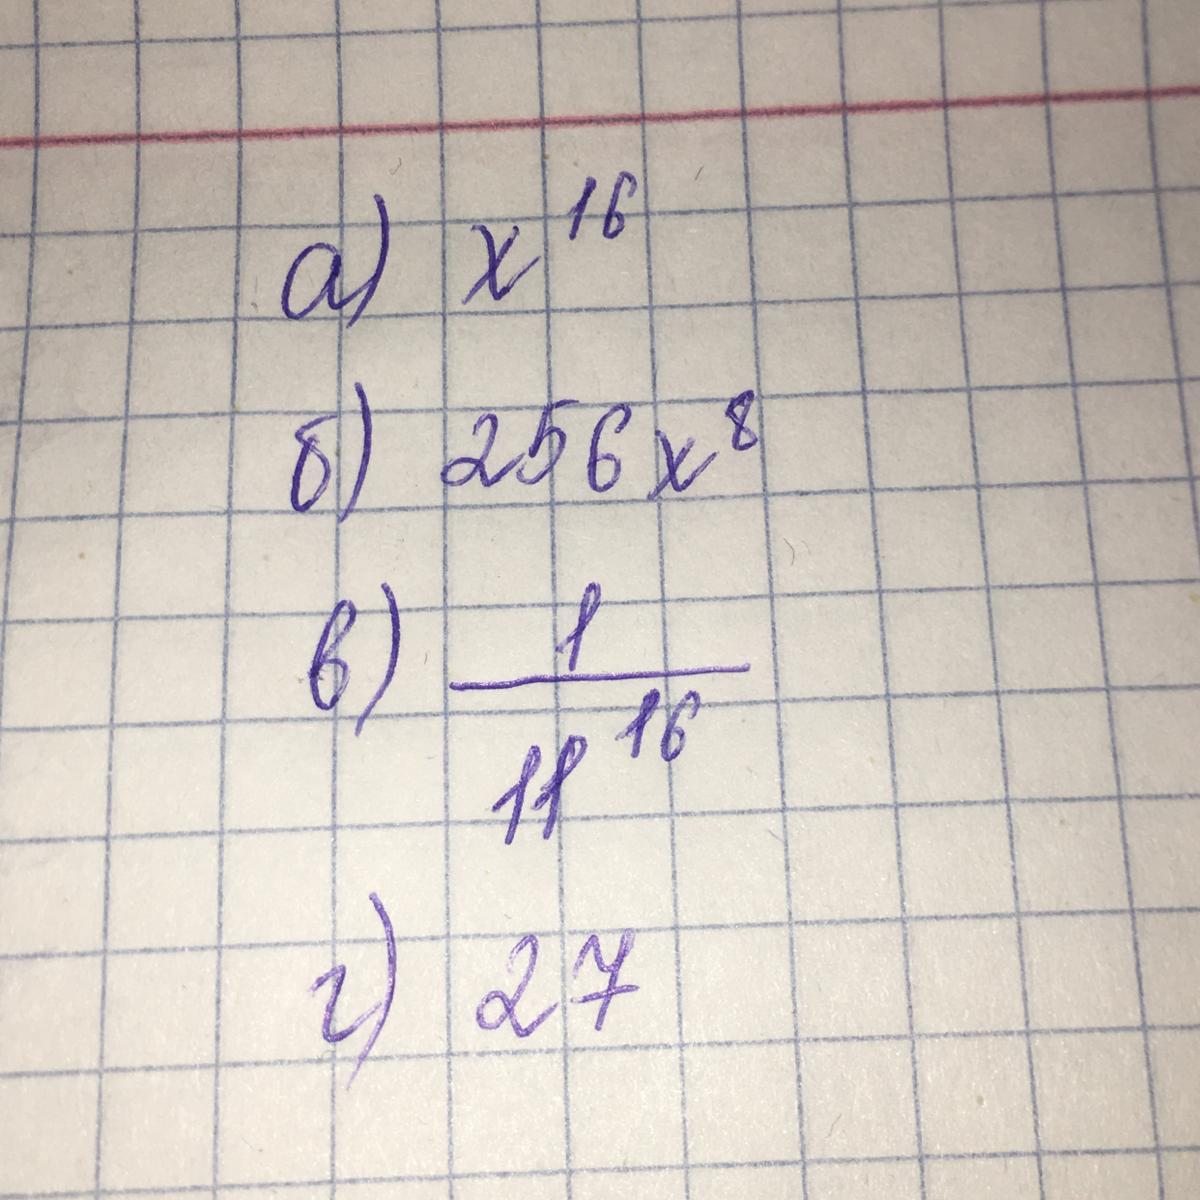 а) x^16
б) 256x^8
в) 1/11^16
г) 27